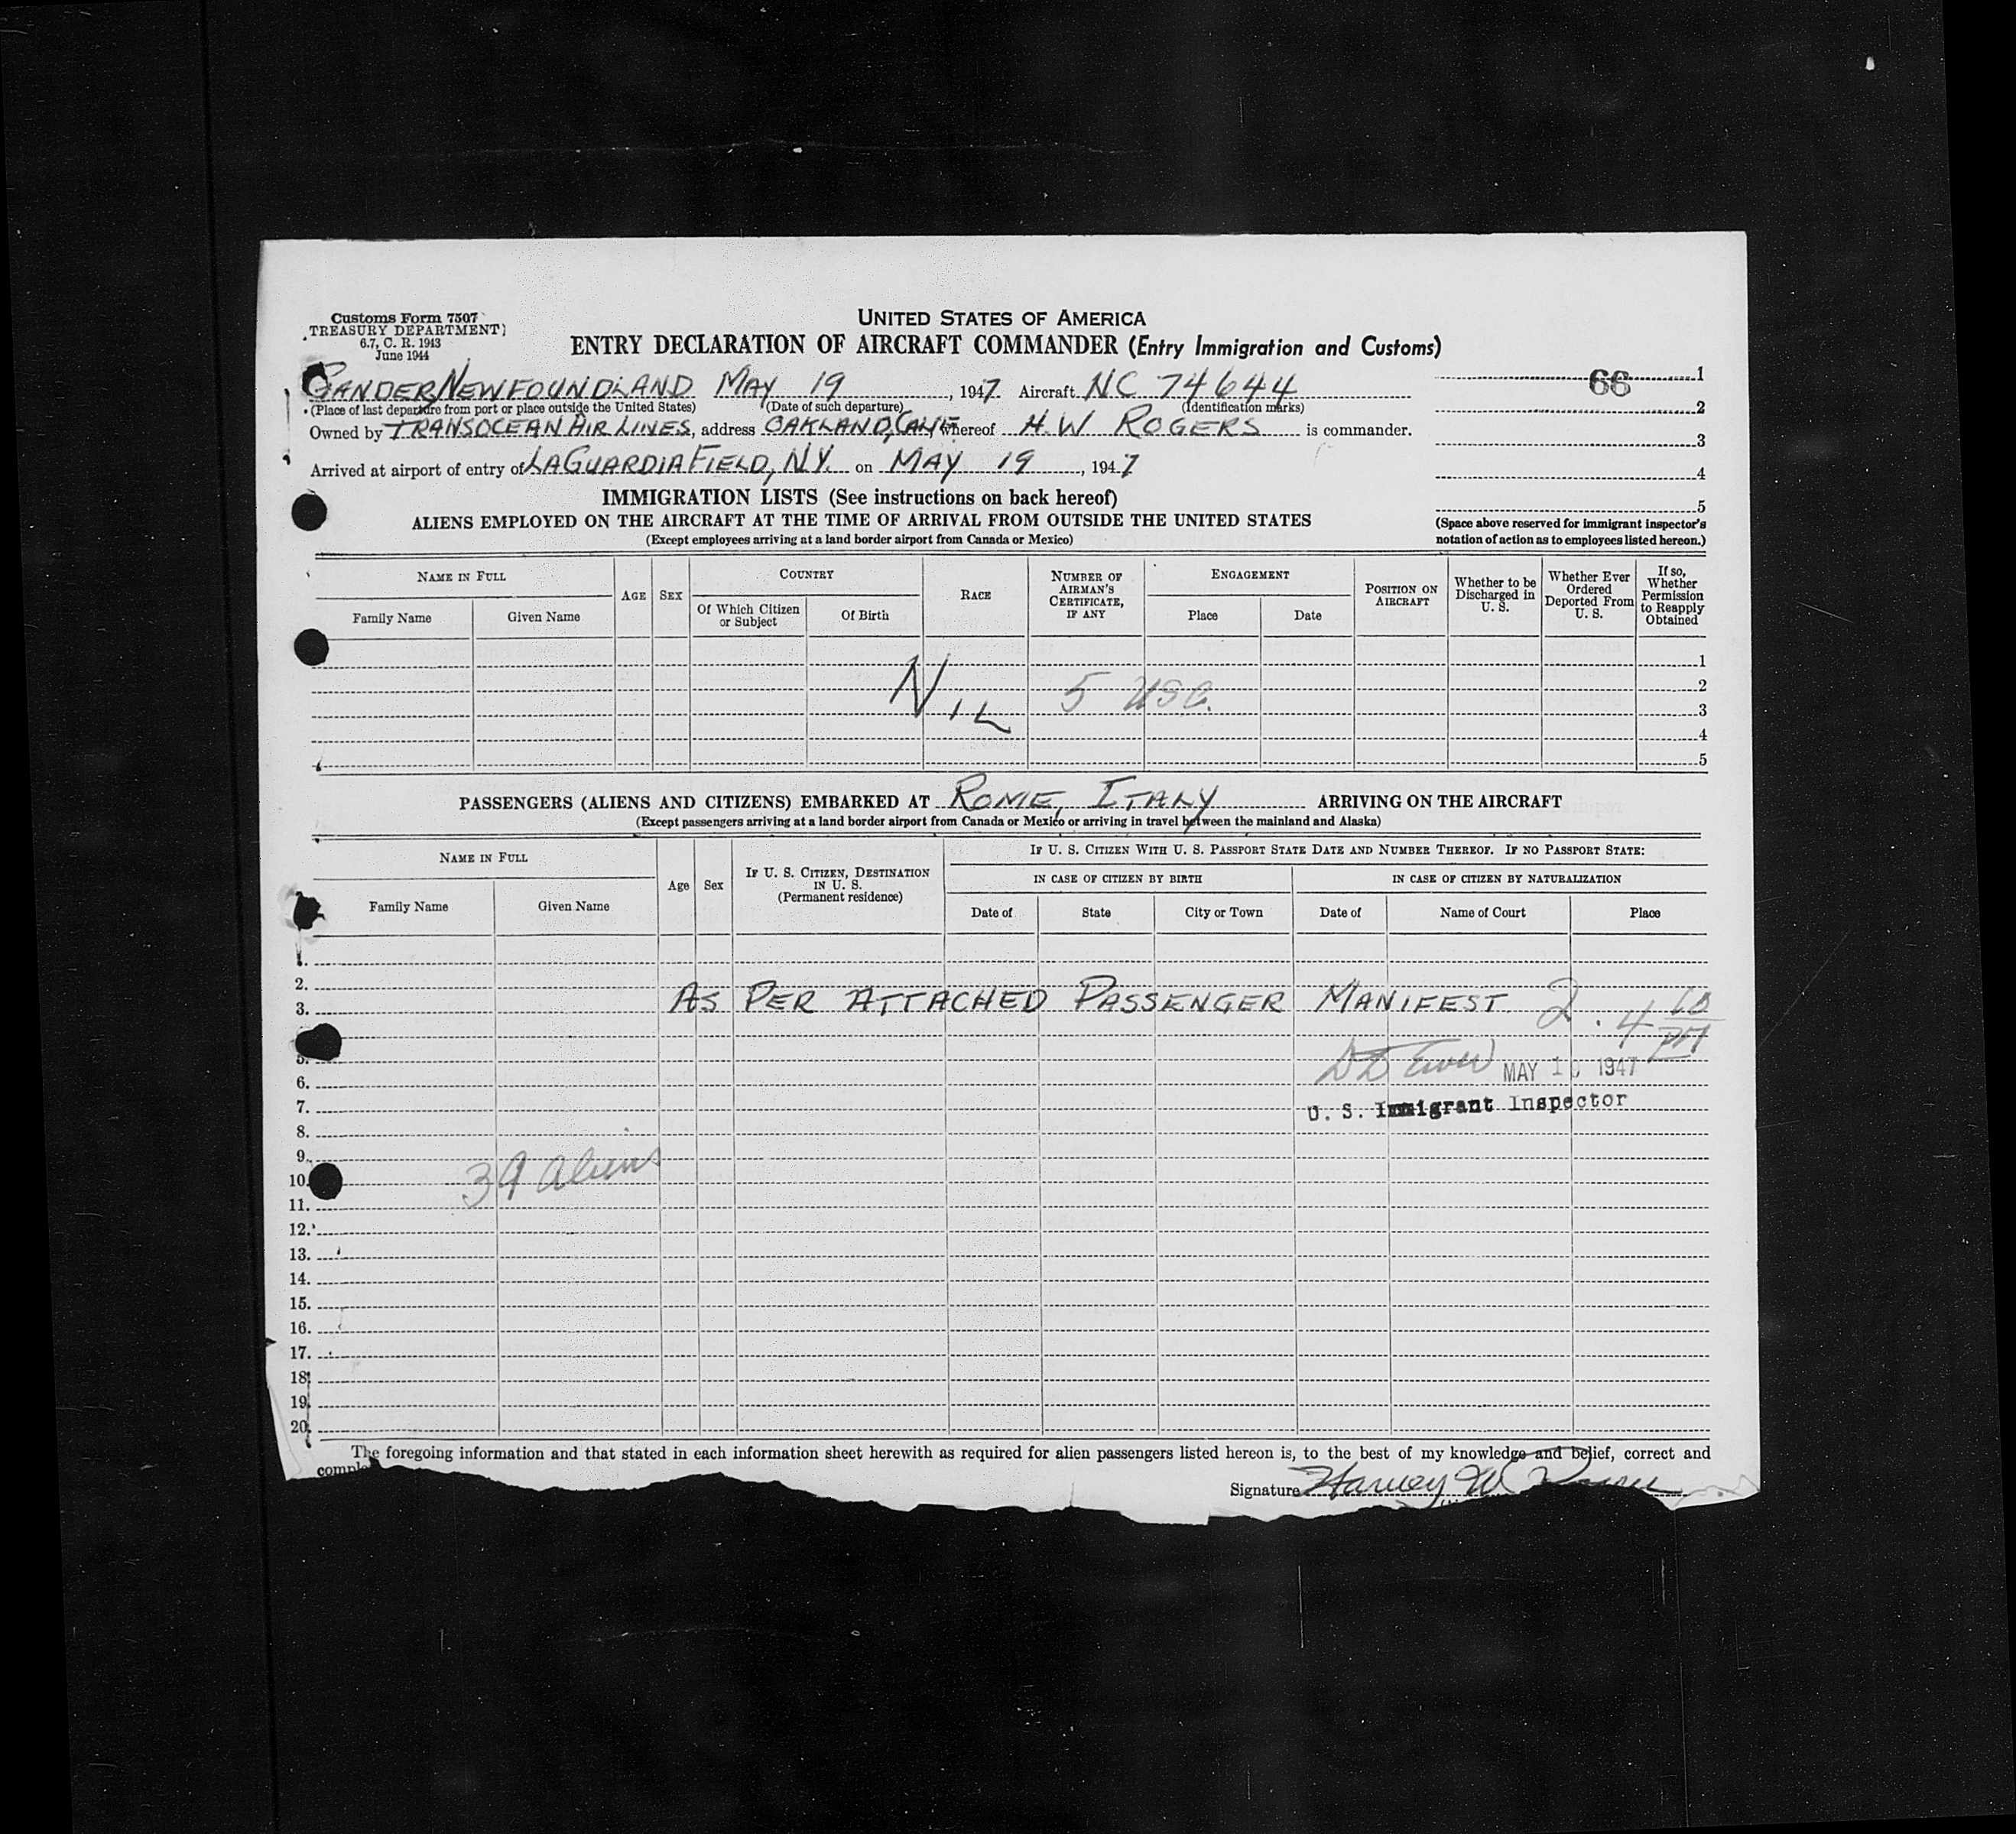 Customs Form 7507
TREASURY DEPARTMENT
6.7, C. R. 1943
June 1944
UNITED STATES OF AMERICA
ENTRY DECLARATION OF AIRCRAFT COMMANDER (Entry Immigration and Customs)
GANDER, NEWFOUNDLAND MAY 19, 1947. Aircraft NC 74644
(Place of last departure from port or place outside the United States) (Date of such departure) (Identification marks)
Owned by TRANSOCEAN AIR LINES, address OAKLAND, CALIF. whereof H. W ROGERS is commander.
Arrived at airport of entry of LAGUARDIA FIELD, N.Y. on MAY 19, 1947
66
1
2
3
4
5
(Space above reserved for immigrant inspector's
notation of action as to employees listed hereon.)
IMMIGRATION LISTS (See instructions on back hereof)
ALIENS EMPLOYED ON THE AIRCRAFT AT THE TIME OF ARRIVAL FROM OUTSIDE THE UNITED STATES
(Except employees arriving at a land border airport from Canada or Mexico)
NAME IN FULL
Family Name Given Name
AGE SEX
COUNTRY
Of Which Citizen or Subject
Of Birth
RACE
NUMBER OF AIRMAN'S CERTIFICATE, IF ANY
ENGAGEMENT
Place Date
POSITION ON AIRCRAFT
Whether to be Discharged in U. S.
Whether Ever Ordered Deported From U. S.
If so, Whether Permission to Reapply Obtained
NIL 5 USC.
1
2
3
4
5
PASSENGERS (ALIENS AND CITIZENS) EMBARKED AT ROME, ITALY ARRIVING ON THE AIRCRAFT
(Except passengers arriving at a land border airport from Canada or Mexico or arriving in travel between the mainland and Alaska)
NAME IN FULL
Family Name Given Name
Age Sex
IF U. S. CITIZEN, DESTINATION IN U. S.
(Permanent residence)
IF U. S. CITIZEN WITH U. S. PASSPORT STATE DATE AND NUMBER THEREOF. IF NO PASSPORT STATE:
IN CASE OF CITIZEN BY BIRTH IN CASE OF CITIZEN BY NATURALIZATION
Date of State City or Town Date of Name of Court Place
1.
2.
3. AS PER ATTACHED PASSENGER MANIFEST 2. 4 10 PM
5. MAY 1 1947
6.
7. U. S. Immigrant Inspector
8.
9.
10. 39 aliens
11.
12.
13.
14.
15.
16.
17.
18.
19.
20.
The foregoing information and that stated in each information sheet herewith as required for alien passengers listed hereon is, to the best of my knowledge and belief, correct and
Signature Harvey W Rogers